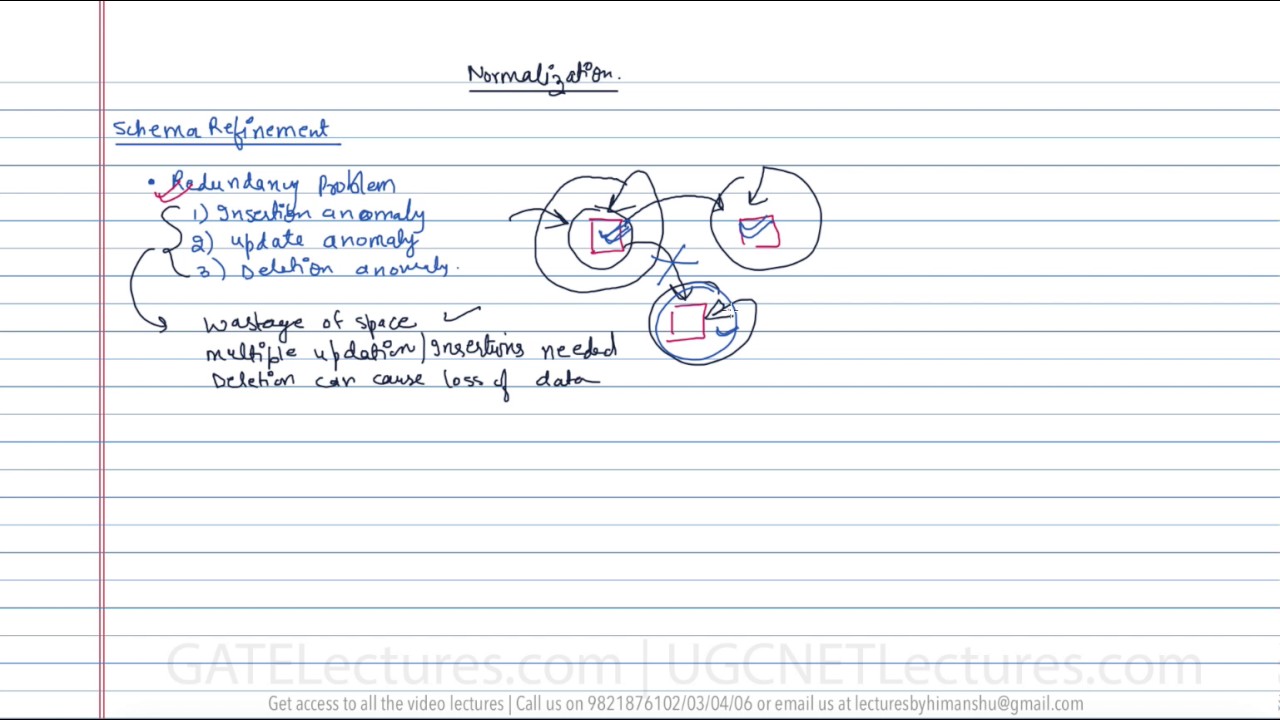 Normalization.
Schema Refinement
• Redundancy Problem
1) Insertion anomaly
2) update anomaly
3) Deletion anomaly.
Wastage of space
multiple updation/Insertions needed
Deletion can cause loss of data
GATELectures.com | UGCNETLectures.com
Get access to all the video lectures | Call us on 9821876102/03/04/06 or email us at lecturesbyhimanshu@gmail.com